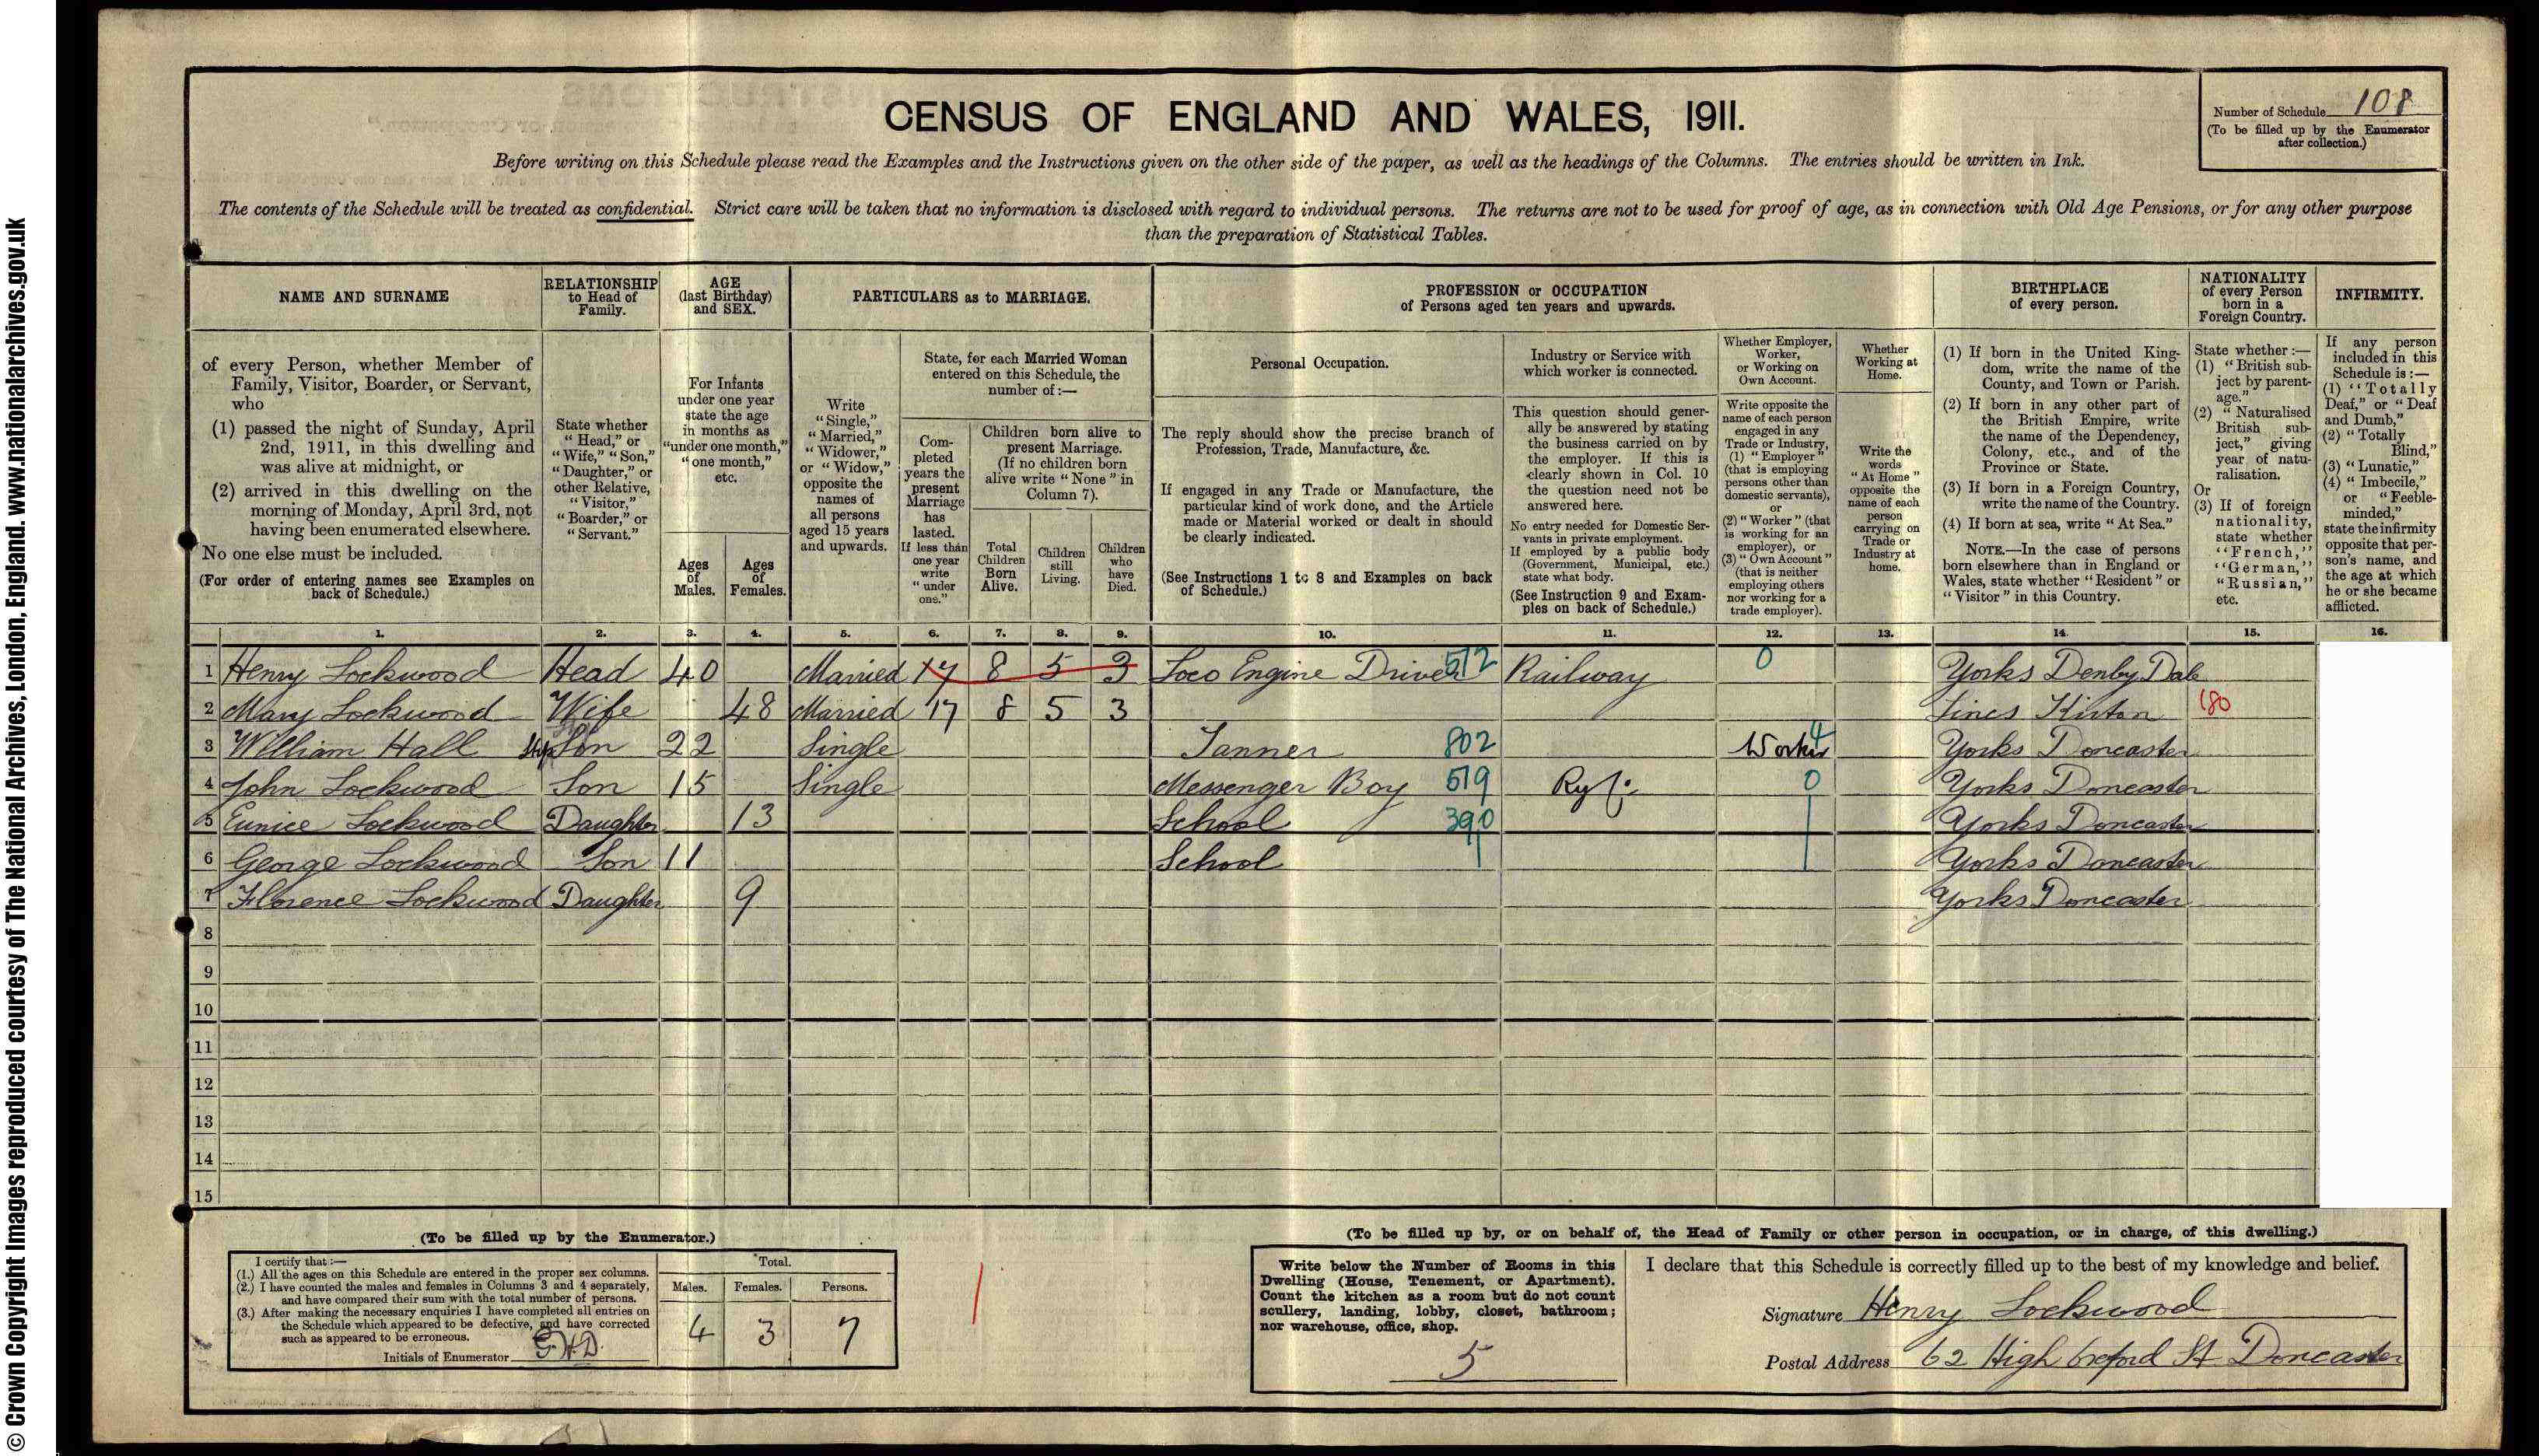 © Crown Copyright Images reproduced courtesy of The National Archives, London, England. www.nationalarchives.gov.uk
CENSUS OF ENGLAND AND WALES, 1911.
Number of Schedule 108
(To be filled up by the Enumerator
after collection.)
Before writing on this Schedule please read the Examples and the Instructions given on the other side of the paper, as well as the headings of the Columns. The entries should be written in Ink.
The contents of the Schedule will be treated as confidential. Strict care will be taken that no information is disclosed with regard to individual persons. The returns are not to be used for proof of age, as in connection with Old Age Pensions, or for any other purpose
than the preparation of Statistical Tables.
NAME AND SURNAME
of every Person, whether Member of
Family, Visitor, Boarder, or Servant,
who
(1) passed the night of Sunday, April
2nd, 1911, in this dwelling and
was alive at midnight, or
(2) arrived in this dwelling on the
morning of Monday, April 3rd, not
having been enumerated elsewhere.
No one else must be included.
(For order of entering names see Examples on
back of Schedule.)
RELATIONSHIP
to Head of
Family.
State whether
"Head," or
"Wife," "Son,"
"Daughter," or
other Relative,
"Visitor,"
"Boarder," or
"Servant."
AGE
(last Birthday)
and SEX.
For Infants
under one year
state the age
in months as
"under one month,"
"one month,"
etc.
Ages
of
Males.
Ages
of
Females.
PARTICULARS as to MARRIAGE.
Write
"Single,"
"Married,"
"Widower,"
or "Widow,"
opposite the
names of
all persons
aged 15 years
and upwards.
State, for each Married Woman
entered on this Schedule, the
number of:—
Com-
pleted
years the
present
Marriage
has
lasted.
If less than
one year
write
"under
one."
Children born alive to
present Marriage.
(If no children born
alive write "None" in
Column 7).
Total
Children
Born
Alive.
Children
still
Living.
Children
who
have
Died.
PROFESSION or OCCUPATION
of Persons aged ten years and upwards.
Personal Occupation.
The reply should show the precise branch of
Profession, Trade, Manufacture, &c.
If engaged in any Trade or Manufacture, the
particular kind of work done, and the Article
made or Material worked or dealt in should
be clearly indicated.
(See Instructions 1 to 8 and Examples on back
of Schedule.)
Industry or Service with
which worker is connected.
This question should gener-
ally be answered by stating
the business carried on by
the employer. If this is
clearly shown in Col. 10
the question need not be
answered here.
No entry needed for Domestic Ser-
vants in private employment.
If employed by a public body
(Government, Municipal, etc.)
state what body.
(See Instruction 9 and Exam-
ples on back of Schedule.)
Whether Employer,
Worker,
or Working on
Own Account.
Write opposite the
name of each person
engaged in any
Trade or Industry,
(1) "Employer"
(that is employing
persons other than
domestic servants),
or
(2) "Worker" (that
is working for an
employer), or
(3) "Own Account"
(that is neither
employing others
nor working for a
trade employer).
Whether
Working at
Home.
Write the
words
"At Home"
opposite the
name of each
person
carrying on
Trade or
Industry at
home.
BIRTHPLACE
of every person.
(1) If born in the United King-
dom, write the name of the
County, and Town or Parish.
(2) If born in any other part of
the British Empire, write
the name of the Dependency,
Colony, etc., and of the
Province or State.
(3) If born in a Foreign Country,
write the name of the Country.
(4) If born at sea, write "At Sea."
NOTE.—In the case of persons
born elsewhere than in England or
Wales, state whether "Resident" or
"Visitor" in this Country.
NATIONALITY
of every Person
born in a
Foreign Country.
State whether:—
(1) "British sub-
ject by parent-
age."
(2) "Naturalised
British sub-
ject," giving
year of natu-
ralisation.
Or
(3) If of foreign
nationality,
state whether
"French,"
"German,"
"Russian,"
etc.
INFIRMITY.
If any person
included in this
Schedule is:—
(1) "Totally
Deaf," or "Deaf
and Dumb,"
(2) "Totally
Blind,"
(3) "Lunatic,"
(4) "Imbecile,"
or "Feeble-
minded,"
state the infirmity
opposite that per-
son's name, and
the age at which
he or she became
afflicted.
1. 2. 3. 4. 5. 6. 7. 8. 9. 10. 11. 12. 13. 14. 15. 16.
1 Henry Lockwood Head 40 Married 17 8 5 3 Loco Engine Driver 512 Railway 0 Yorks Denby Dale
2 Mary Lockwood Wife 48 Married 17 8 5 3 Lincs Kirton 180
3 William Hall Step Son 22 Single Tanner 802 Worker 4 Yorks Doncaster
4 John Lockwood Son 15 Single Messenger Boy 519 Ry 0 Yorks Doncaster
5 Eunice Lockwood Daughter 13 School 390 Yorks Doncaster
6 George Lockwood Son 11 School Yorks Doncaster
7 Florence Lockwood Daughter 9 Yorks Doncaster
8
9
10
11
12
13
14
15
(To be filled up by the Enumerator.)
I certify that:—
(1.) All the ages on this Schedule are entered in the proper sex columns.
(2.) I have counted the males and females in Columns 3 and 4 separately,
and have compared their sum with the total number of persons.
(3.) After making the necessary enquiries I have completed all entries on
the Schedule which appeared to be defective, and have corrected
such as appeared to be erroneous.
Initials of Enumerator
Total.
Males. Females. Persons.
4 3 7
(To be filled up by, or on behalf of, the Head of Family or other person in occupation, or in charge, of this dwelling.)
Write below the Number of Rooms in this
Dwelling (House, Tenement, or Apartment).
Count the kitchen as a room but do not count
scullery, landing, lobby, closet, bathroom;
nor warehouse, office, shop.
5
I declare that this Schedule is correctly filled up to the best of my knowledge and belief.
Signature Henry Lockwood
Postal Address 62 High St Doncaster